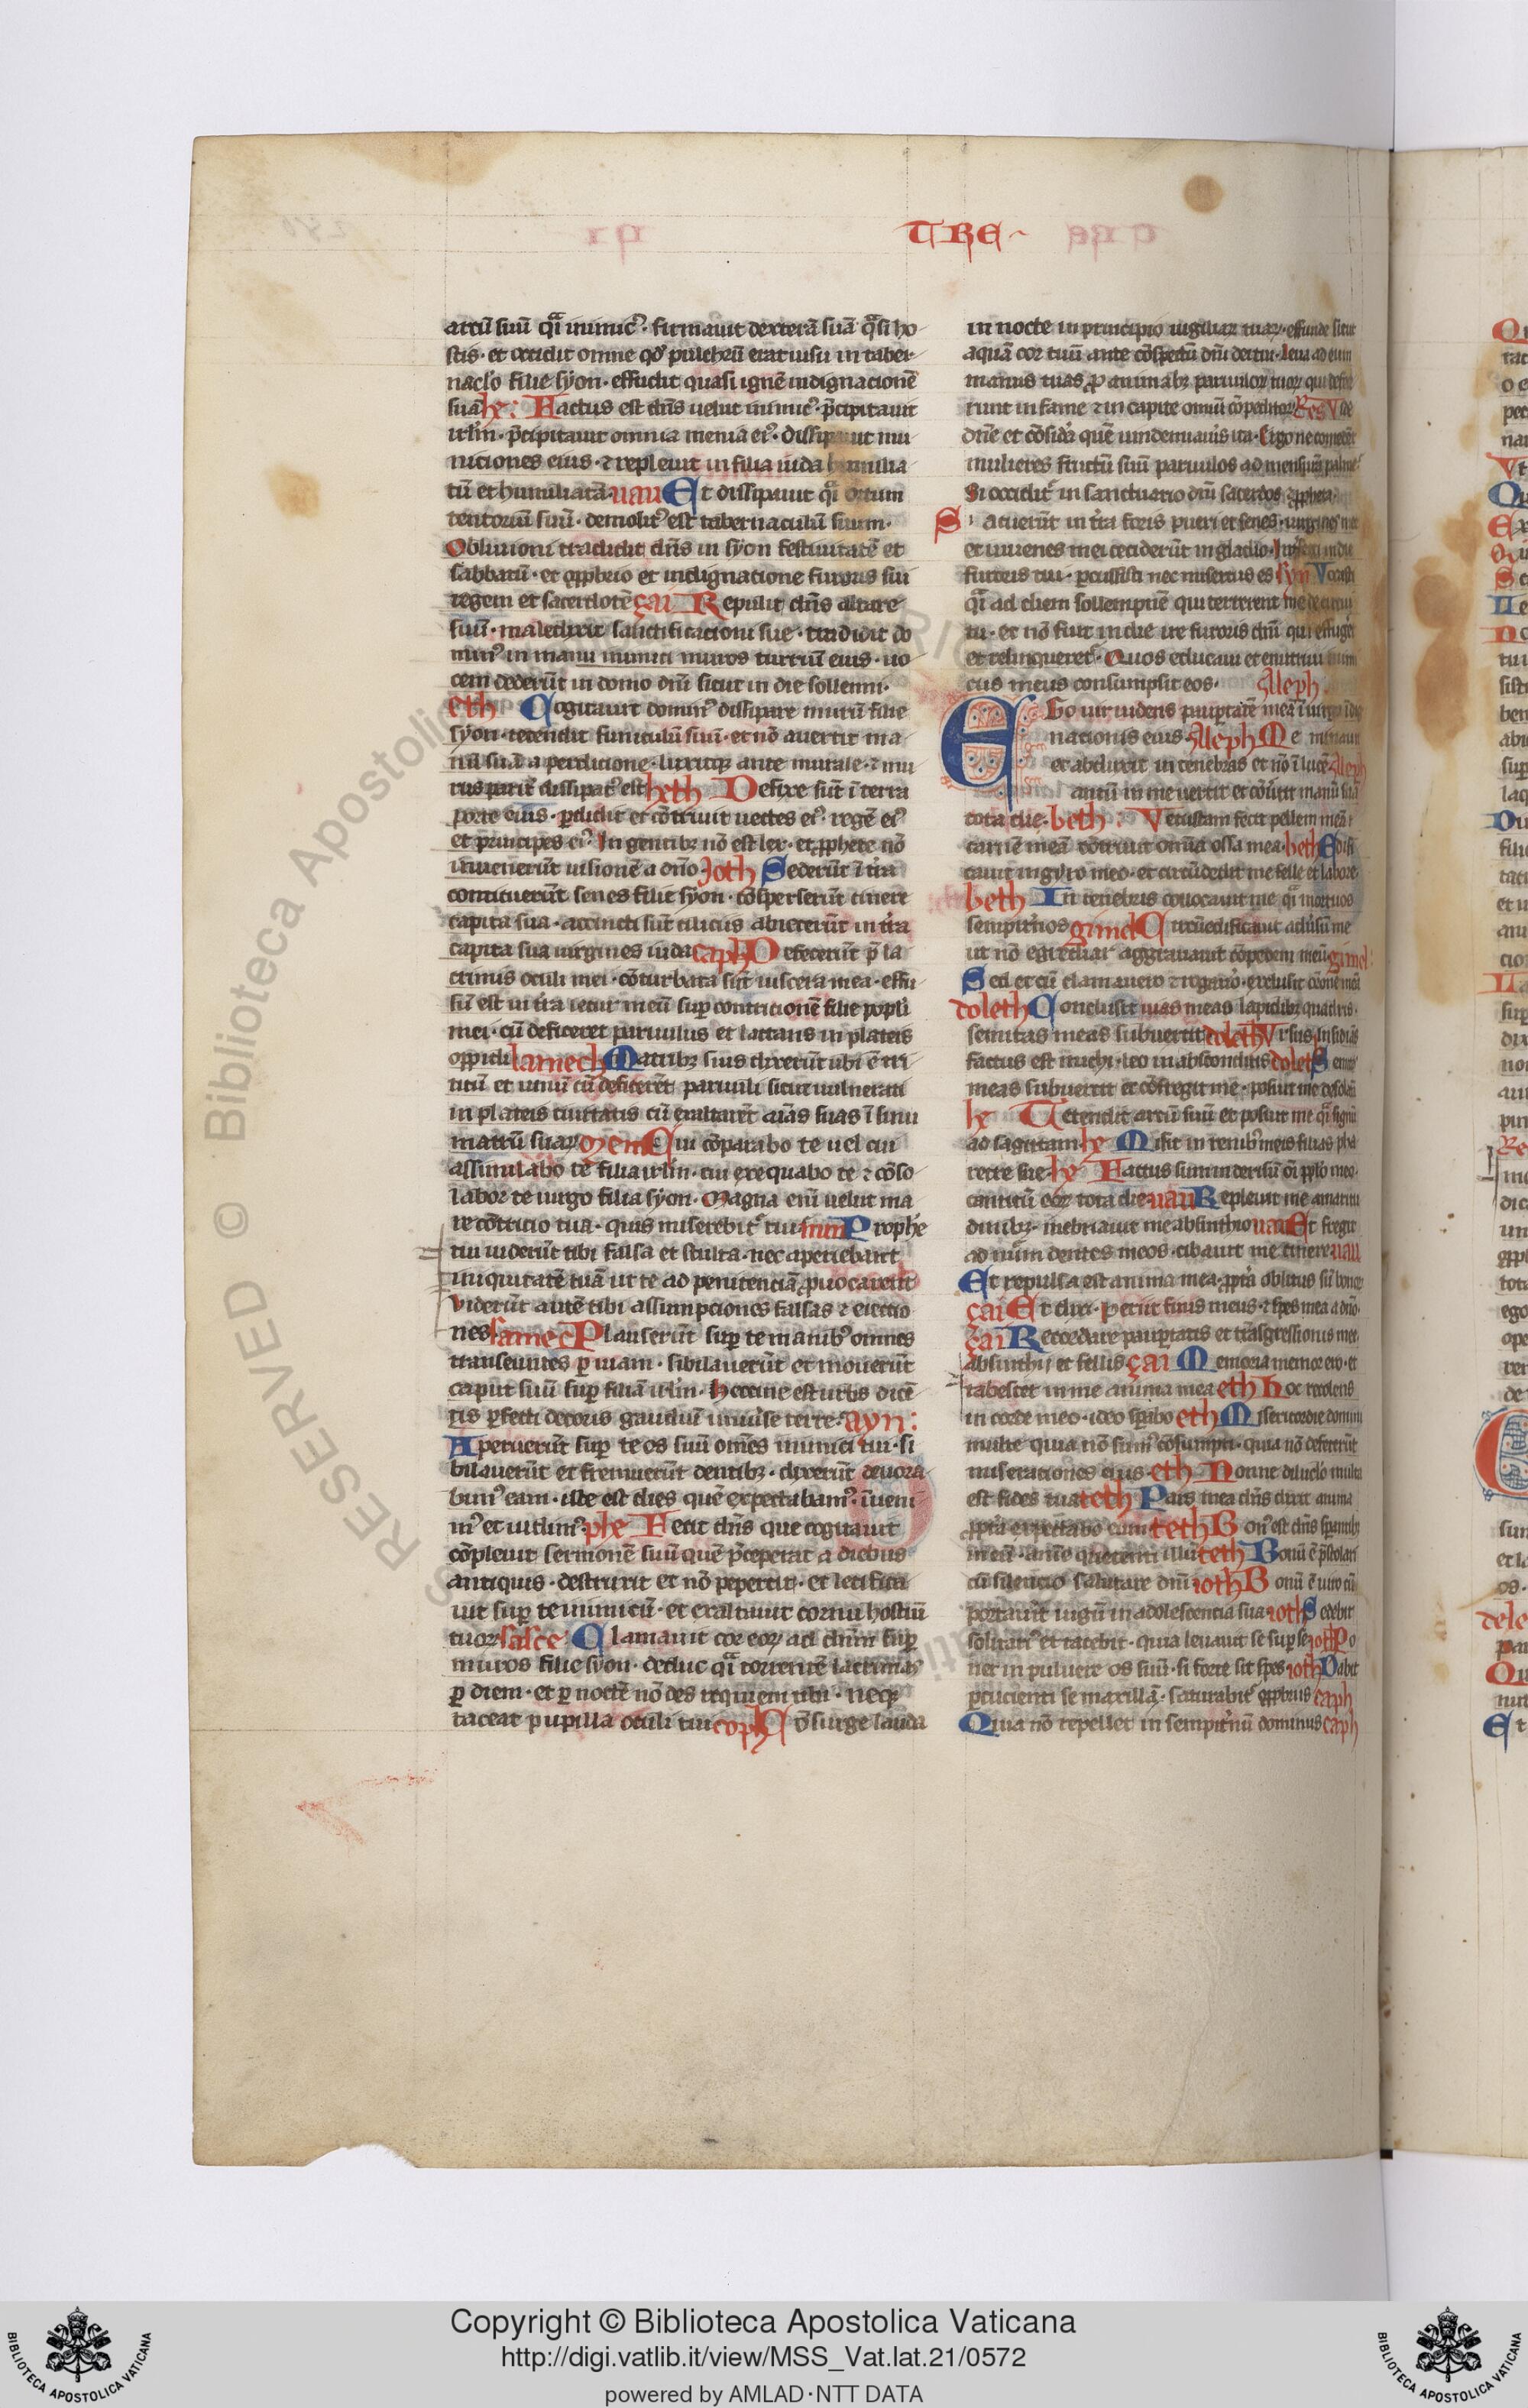 TRE
arcū suū q̄i inimic᷒. firmauit dexterā suā q̄si ho
stis. et occidit omne qđ pulchrū erat uisu in taber
naclo filie syon. effudit quasi ignē indignacionē
suā he: Factus est dn̄s uelut inimic᷒. p̄cipitauit
irlm̄. p̄cipitauit omnia menia ei᷒. dissipauit mu
niciones eius. ⁊ repleuit in filia iuda humilia
tū et humiliatā. uau Et dissipauit q̄i ortum
tentoriū suū. demolit᷒ est tabernaculū suum.
Obliuioni tradidit dn̄s in syon festiuitatē et
sabbatū. et opprobrio et indignatione furoris sui
regem et sacerdotē çai Repulit dn̄s altare
suū. maledixit sanctificacioni sue. tradidit do
min᷒ in manu inimici muros turriū eius. uo
cem dederūt in domo dn̄i sicut in die sollenni.
eth Cogitauit domin᷒ dissipare murū filie
syon. tetendit funiculū suū. et nō auertit ma
nū suā a perdicione. luxitqꝫ ante murale. ⁊ mu
rus parit᷒ dissipat᷒ est heth Defixe sūt ī terra
porte eius. ꝑdidit et cōtriuit uectes ei᷒. regē ei᷒
et principes ei᷒. In gentibꝫ nō est lex. et ꝓphete nō
inuenerūt uisionē a dn̄o. Joth Sederūt ī tr̄a
conticuerūt senes filie syon. cōsperserūt cinere
capita sua. accincti sūt ciliciis abiecerūt in tr̄a
capita sua uirgines iuda caph Defecerūt p̄ la
crimis oculi mei. cōturbata sūt uiscera mea. effu
sū est in tr̄a iecur meū suꝑ contricionē filie popli
mei. cū deficeret paruulus et lactans in plateis
oppidi lamech Matribꝫ suis dixerūt ubi ē tri
ticū et uinū cū deficerēt paruuli sicut uulnerati
in plateis ciuitatis cū exalarēt aīas suas ī sinu
matrū suaꝝ mem Cui cōparabo te uel cui
assimilabo te filia irlm̄. cui exequabo te ⁊ cōso
labor te uirgo filia syon. Magna enī uelut ma
re cōtricio tua. quis miserebit᷒ tui nun Prophe
tui uiderūt tibi falsa et stulta. nec aperiebant
iniquitatē tuā ut te ad penitenciā ꝓuocarent
Viderūt autē tibi assumpciones falsas ⁊ eiectio
nes. samec Plauserūt suꝑ te manib᷒ omnes
transeuntes ꝑ uiam. sibilauerūt et mouerūt
caput suū suꝑ filiā irlm̄. Heccine est urbs dicē
tis ꝑfecti decoris gaudiū uniu̇se terre. ayn:
Aperuerūt suꝑ te os suū om̄es inimici tui. si
bilauerūt et fremuerūt dentibꝫ. dixerūt deuora
bim᷒ eam. iste est dies quē expectabam᷒. īueni
m᷒ et uidim᷒. phe Fecit dn̄s que cogitauit
cōpleuit sermonē suū quē p̄ceperat a diebus
antiquis. destruxit et nō pepercit. et letifica
uit suꝑ te inimicū. et exaltauit cornu hostiū
tuoꝝ sasce Clamauit cor eoꝝ ad dn̄m suꝑ
muros filie syon. deduc q̄i torrentē lacrimas
ꝑ diem. et ꝑ noctē nō des requiem tibi. neqꝫ
taceat pupilla oculi tui coph Cōsurge lauda
in nocte in principio uigiliaꝝ tuaꝝ. effunde sicut
aquā cor tuū ante cōspectū dn̄i dei tui. leua ad eum
manus tuas ꝓ animabꝫ paruuloꝝ tuoꝝ qui defece
runt in fame ⁊ in capite omniū cōpetitoꝝ Res Vide
dn̄e et cōsidera quē uindemiaueris ita. Ergo ne comedēt
mulieres fructū suū paruulos ad mensurā palme
Si occidit᷒ in sanctuario dn̄i sacerdos ⁊ ꝓpheta.
S Iacuerūt in tr̄a foris pueri et senes. uirgines mee
et iuuenes mei ceciderūt in gladio. Int᷒fecisti in die
furoris tui. ꝑcussisti nec misertus es syn Vocasti
q̄i ad diem sollempnē qui terrerent me de circui
tu. et nō fuit in die ire furoris dn̄i qui effuget᷒
et relinqueret᷒. Quos educaui et enutriui inimi
cus meus consumpsit eos. Aleph
Ego uir uidens pauꝑtatē meā ī uirga īdig
nacionis eius. Aleph Me minauit
et abduxit in tenebras et nō ī lucē Aleph
antū in me uertit et cōu̇tit manū suā
tota die. beth. Vetustam fecit pellem meā ⁊
carnē meā. cōtriuit omīa ossa mea. beth Edifi
cauit in gyro meo. et circūdedit me felle et labore.
beth In tenebris collocauit me q̄i mortuos
sempit᷒nos gimel Circūedificauit adu̇sū me
ut nō egrediar aggrauauit cōpedem meū gimel
Sed et cū clamauero ⁊ rogauo. exclusit oc̄onē meā
doleth Conclusit uias meas lapidibꝫ quadris.
semitas meas subuertit doleth Vrsus insidiās
factus est michi. leo in absconditis dolet Semitas
meas subuertit et cōfregit me. posuit me desolatā
he Tetendit arcū suū et posuit me q̄i signū
ad sagittam. he Misit in renib᷒ meis filias pha
retre sue. he Factus sum in derisū oī pplo meo
canticū eoꝝ tota die uau Repleuit me amaritu
dinibꝫ. inebriauit me absinthio uau Et fregit
ad num̄ dentes meos. cibauit me cinere uau
Et repulsa est anima mea. ꝓpt᷒a oblitus sū bonoꝝ
çai Et dixi. Periit finis meus. ⁊ spes mea a dn̄o.
çai Recordare pauꝑtatis et trāsgressionis mee
absinthii et fellis çai Memoria memor ero. et
tabescet in me anima mea eth Hoc recolens
in corde meo. ideo sꝑabo eth Misericordie domini
multe quia nō sum᷒ cōsumpti. quia nō defecerūt
miseraciones eius. eth Noui diluclo multa
est fides tua teth Pars mea dn̄s dixit anima
ꝓpt᷒a expectabo eum teth Bon᷒ est dn̄s sꝑantibꝫ
meū. anīe querenti illū teth Bonū ē p̄stolari
cū silencio salutare dn̄i ioth Bonū ē uiro cū
portauit iugū in adolescencia sua ioth Sedebit
solitari᷒ et tacebit. quia leuauit se suꝑ se ioth Po
net in puluere os suū. si forte sit spes ioth Dabit
ꝑcucienti se maxillā. saturabit᷒ opprobriis caph
Quia nō repellet in sempit᷒nū dominus caph
Copyright © Biblioteca Apostolica Vaticana
http://digi.vatlib.it/view/MSS_Vat.lat.21/0572
powered by AMLAD·NTT DATA